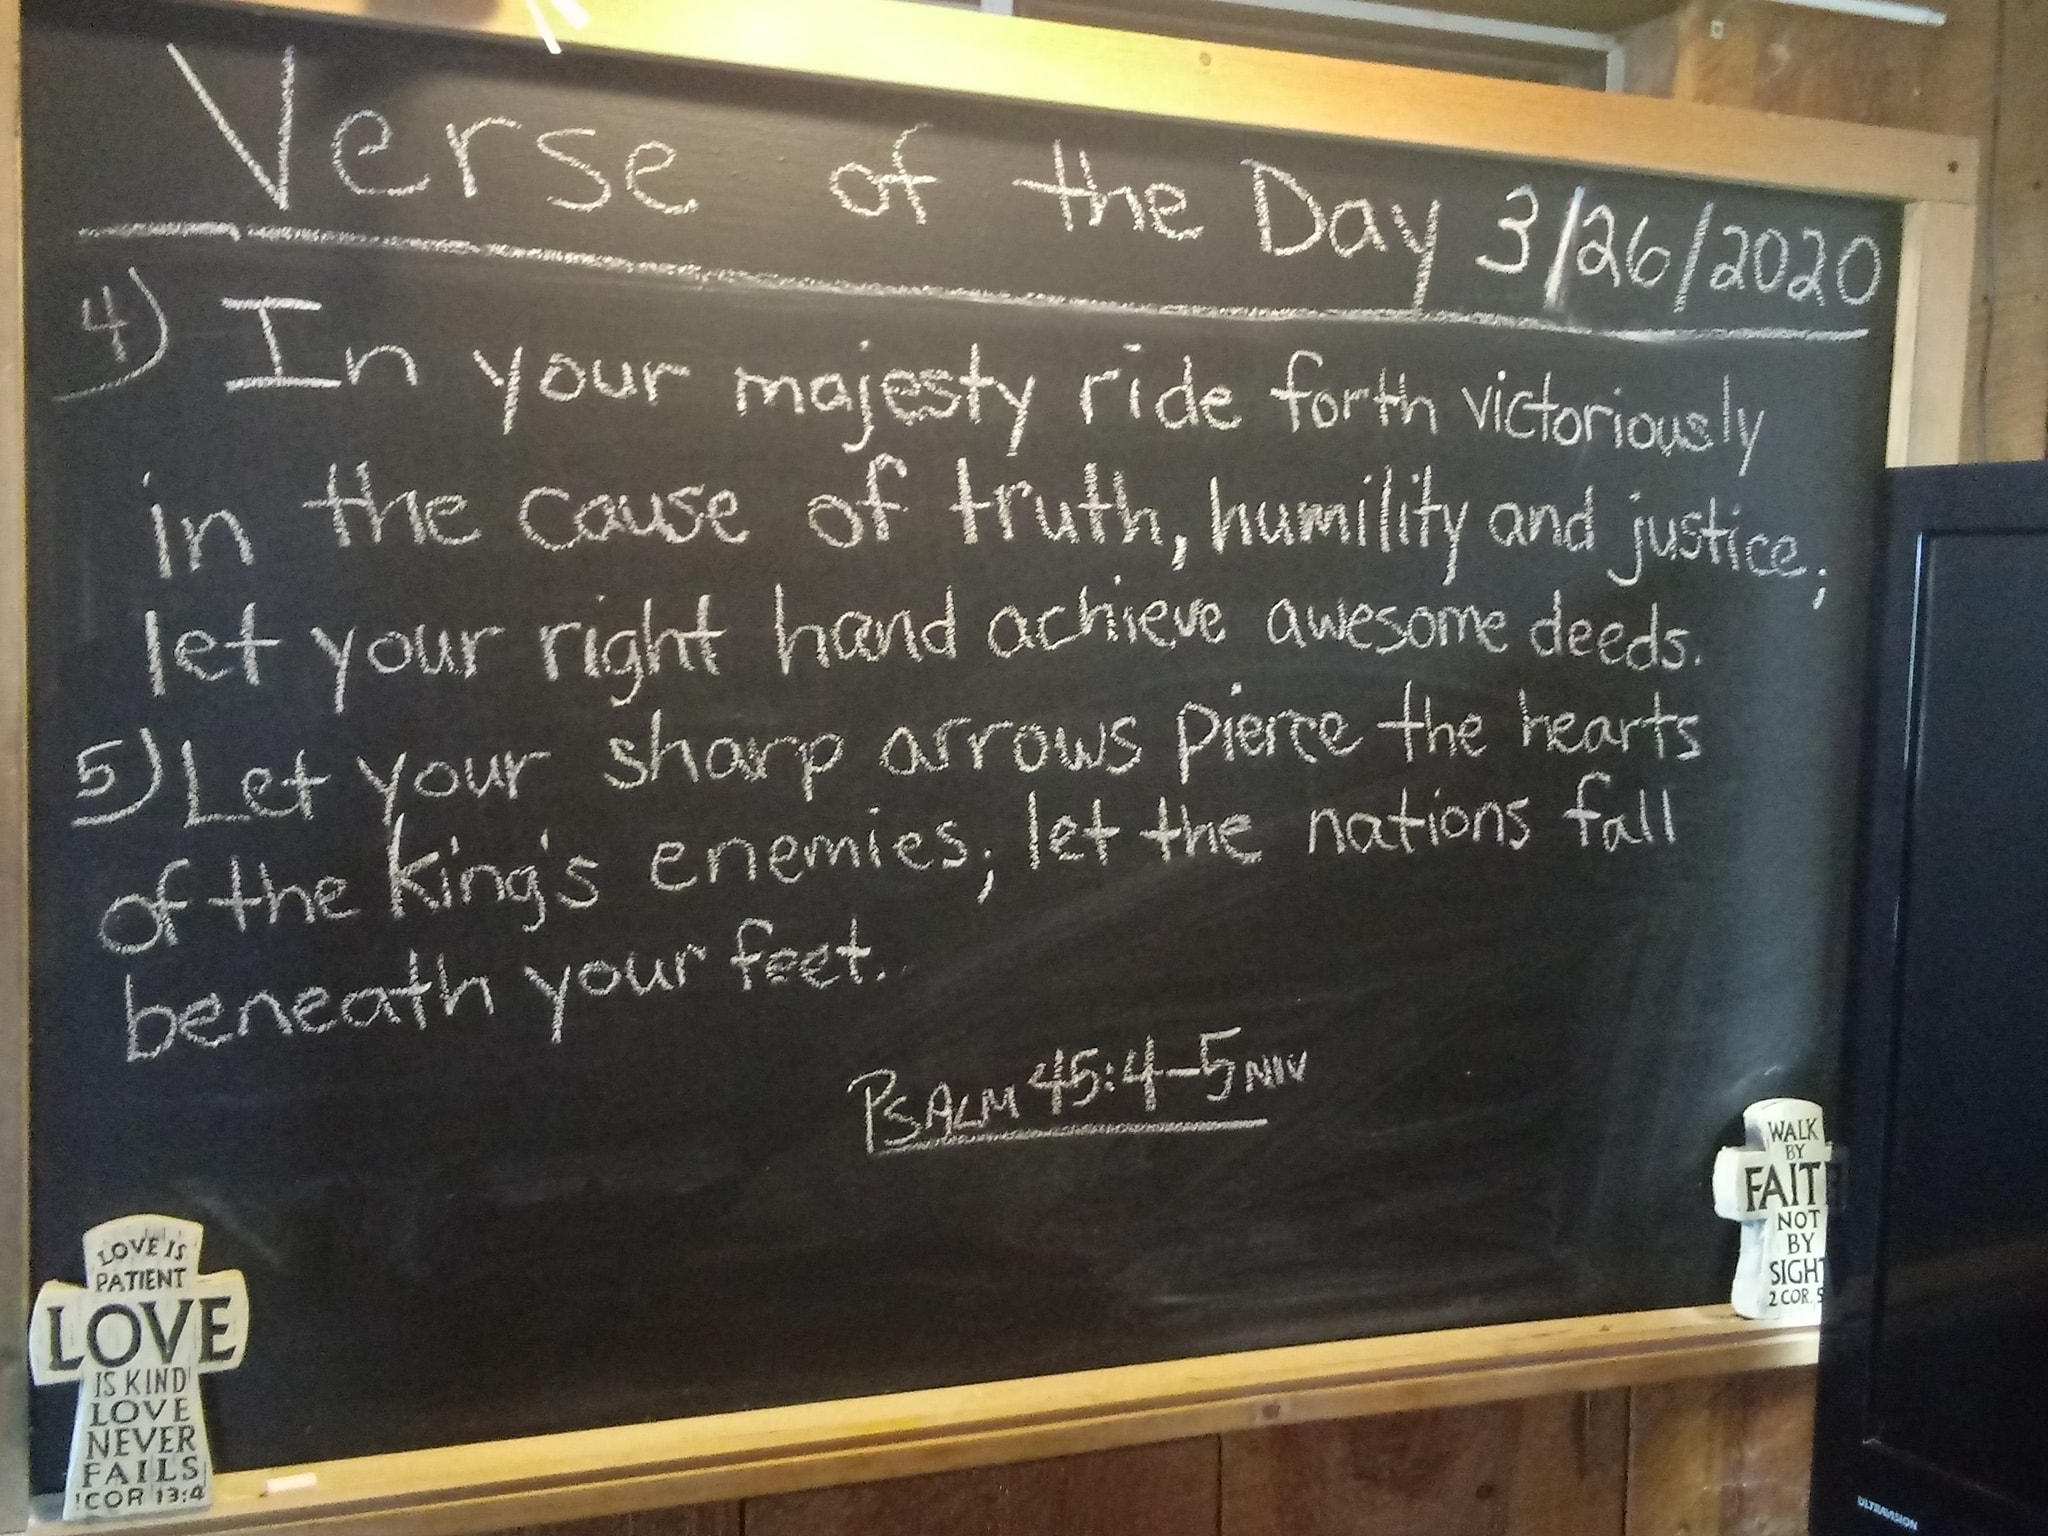 Verse of the Day 3/26/2020
4) In your majesty ride forth victoriously
in the cause of truth, humility and justice;
let your right hand achieve awesome deeds.
5) Let your sharp arrows pierce the hearts
of the king's enemies; let the nations fall
beneath your feet.
PSALM 45:4-5 NIV
LOVE IS
PATIENT
LOVE
IS KIND
LOVE
NEVER
FAILS
1COR 13:4
WALK
BY
FAITH
NOT
BY
SIGHT
2 COR. 5
ULTRAVISION